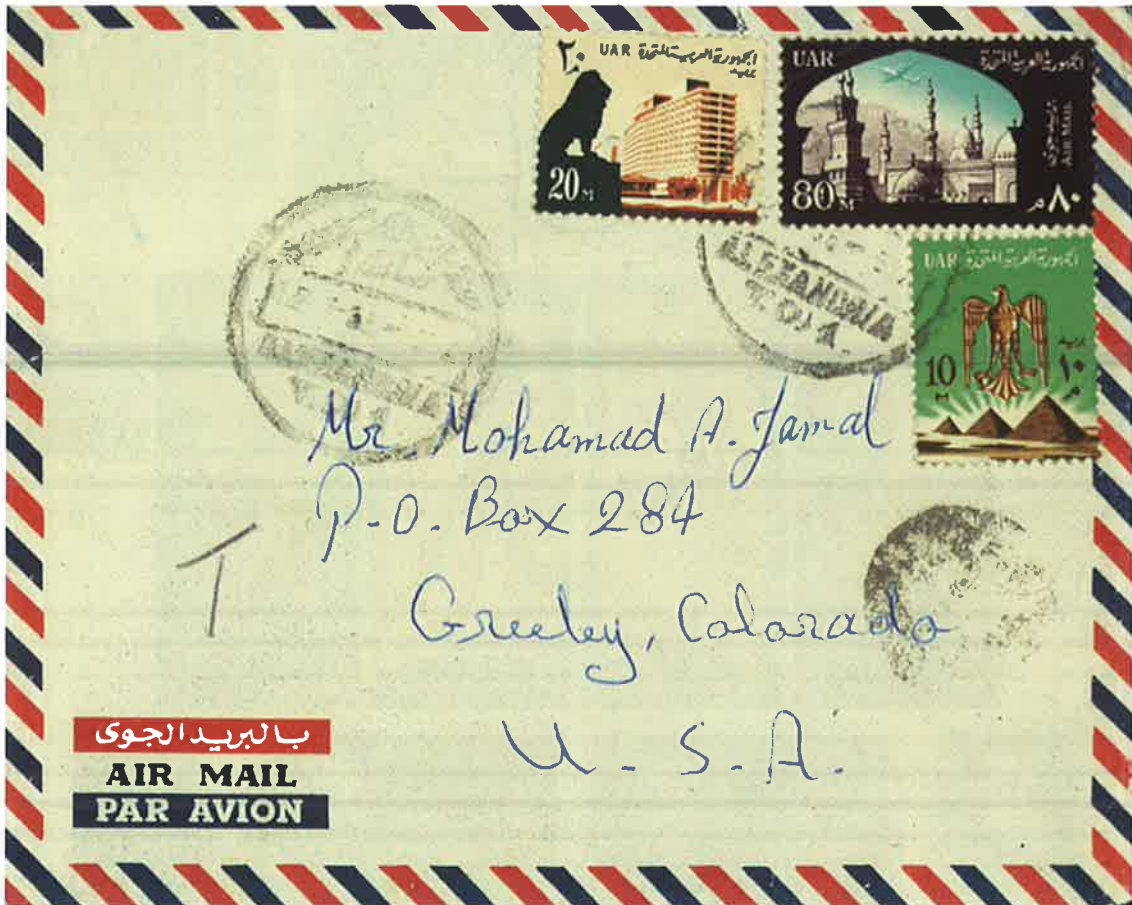 ٢٠ UAR الجمهورية العربية المتحدة
بريد
20 M
UAR الجمهورية العربية المتحدة
بريد جوى
AIR MAIL
80 M ٨٠ م
ALEXANDRIA
UAR الجمهورية العربية المتحدة
بريد
10 M ١٠ م
ALEXANDRIA
Mr Mohamad A. Jamal
P.O. Box 284
Greeley, Colorado
U-S.A.
T
بالبريد الجوى
AIR MAIL
PAR AVION